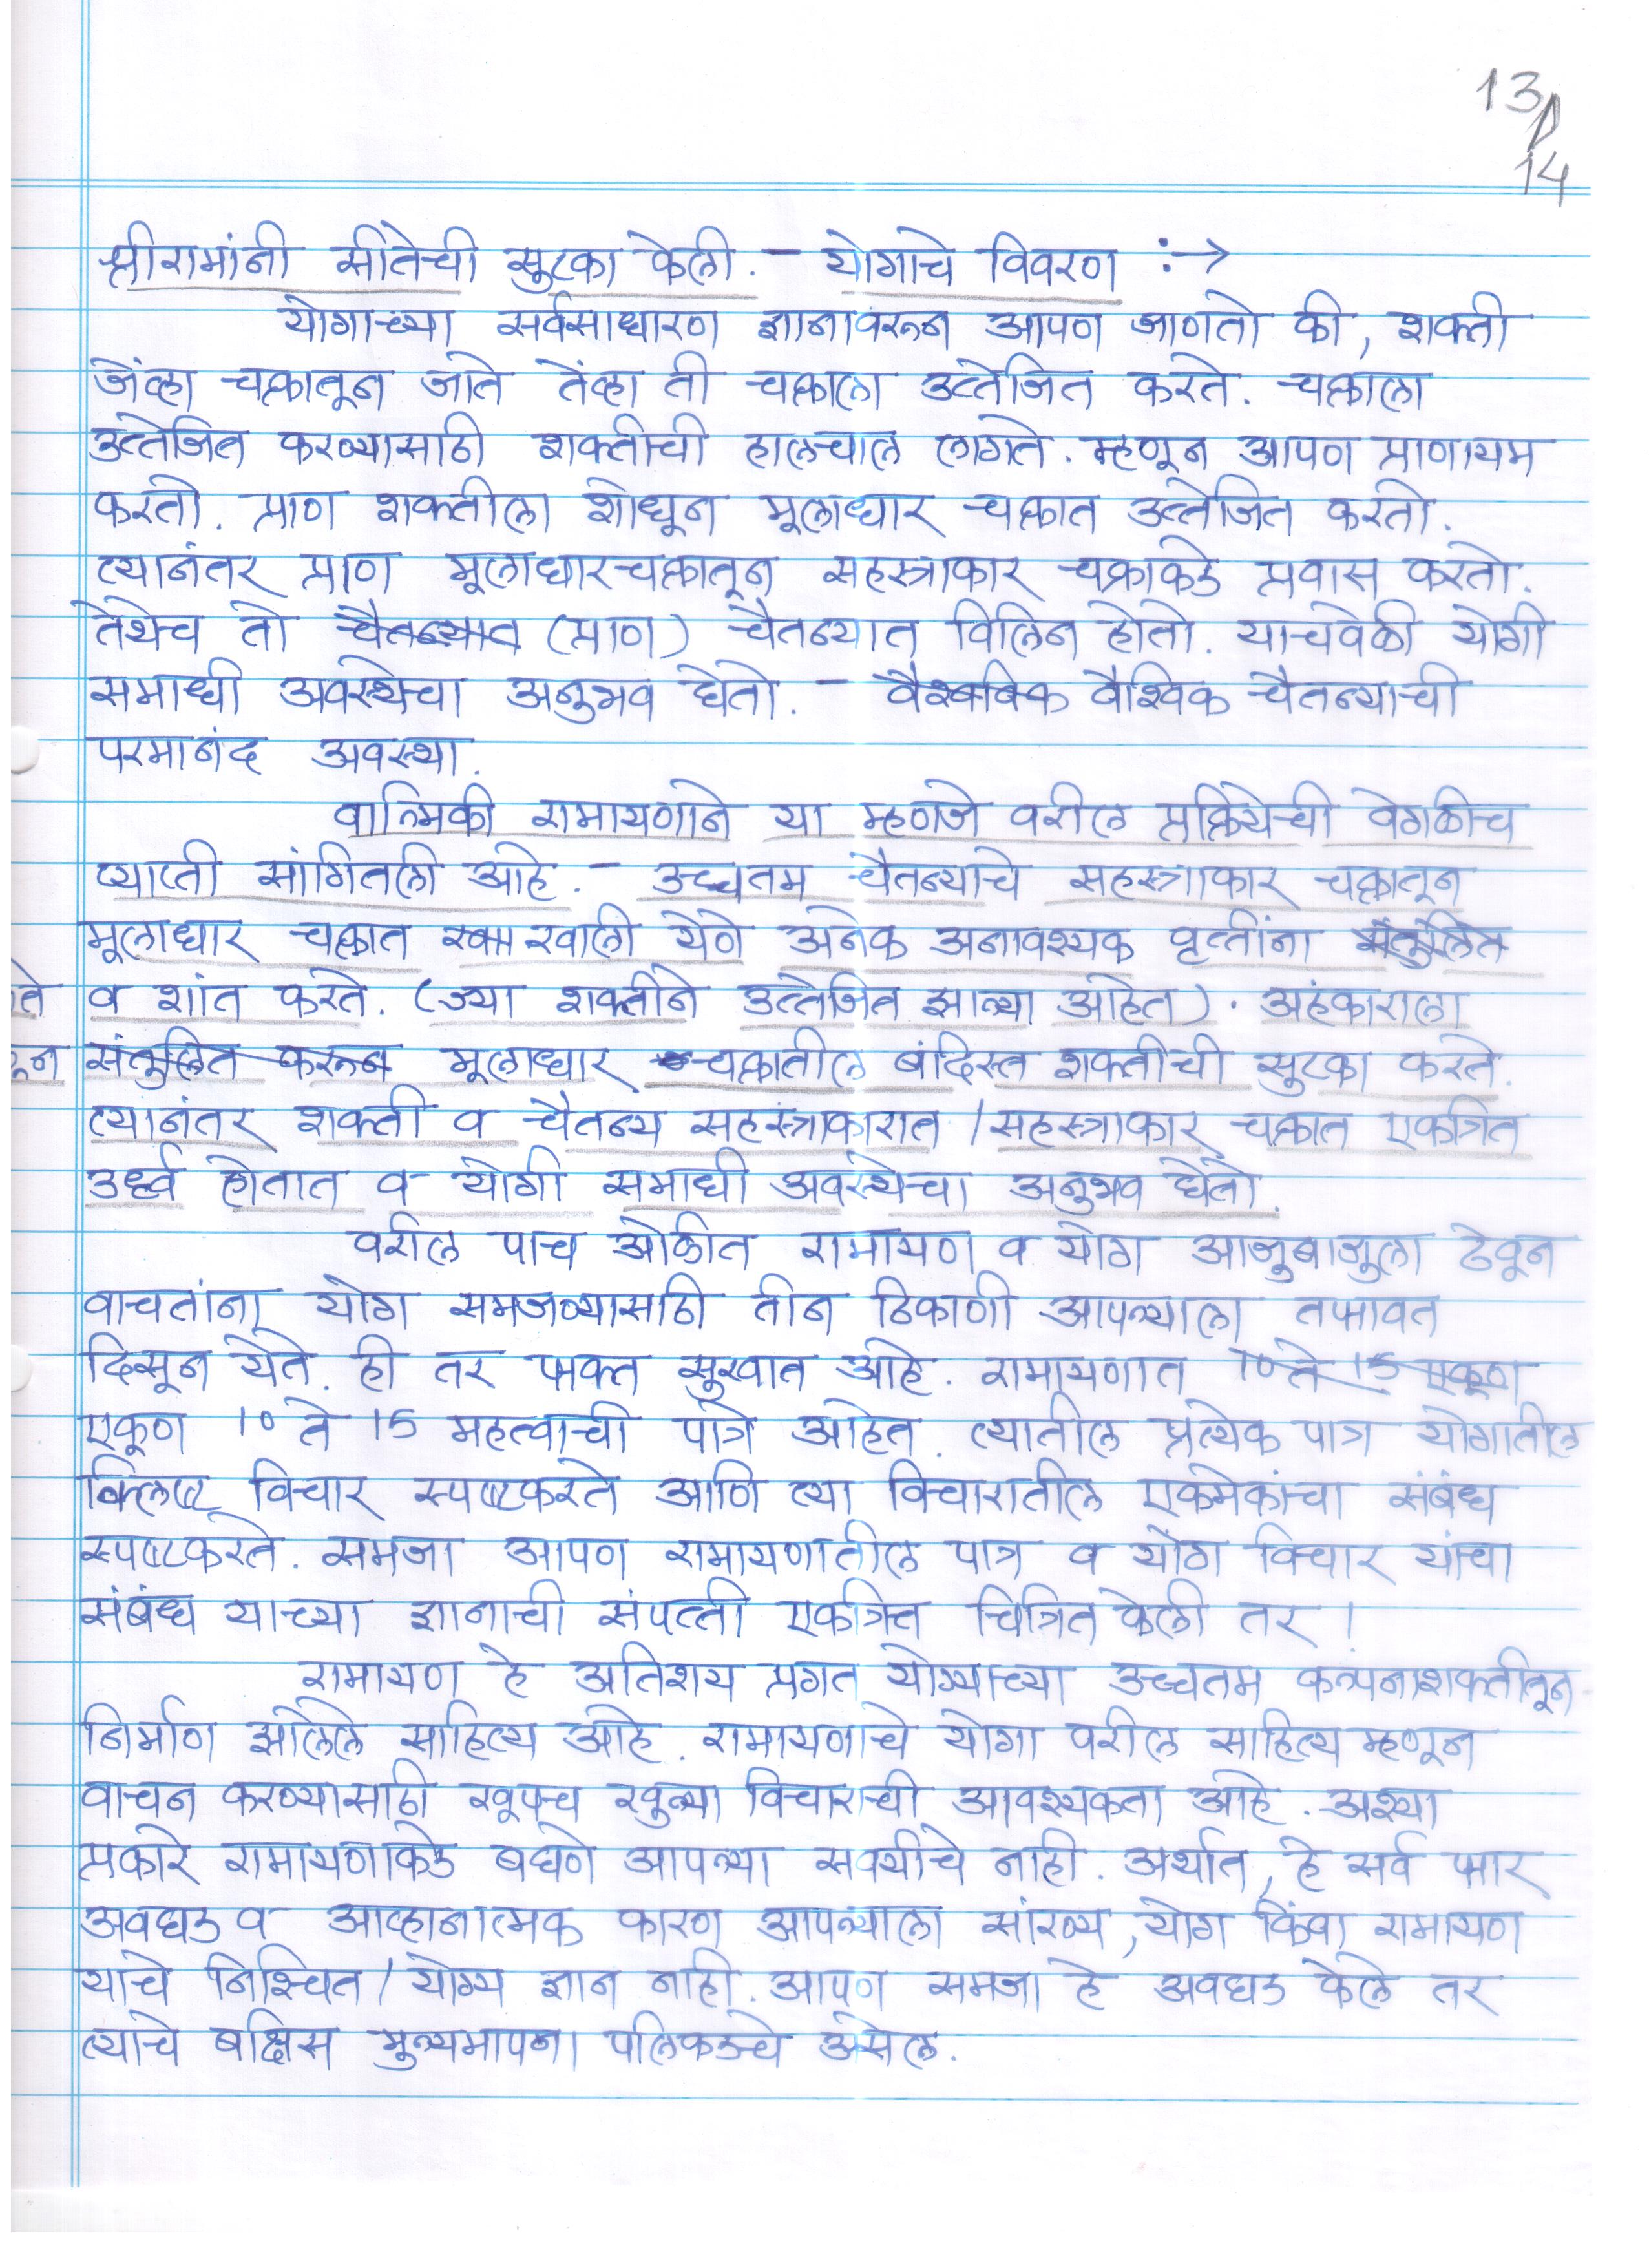 13
14
श्रीरामांनी सीतेची सुटका केली. – योगाचे विवरण :→
योगाच्या सर्वसाधारण ज्ञानावरून आपण जाणतो की, शक्ती
जेंव्हा चक्रातून जाते तेंव्हा ती चक्राला उत्तेजित करते. चक्राला
उत्तेजित करण्यासाठी शक्तीची हालचाल लागते. म्हणून आपण प्राणायम
करतो. प्राण शक्तीला शोधून मूलाधार चक्रात उत्तेजित करतो.
त्यानंतर प्राण मूलाधारचक्रातून सहस्त्राकार चक्राकडे प्रवास करतो.
तेथेच तो चैतन्यात (प्राण) चैतन्यात विलिन होतो. याचवेळी योगी
समाधी अवस्थेचा अनुभव घेतो. – वैश्विक चैतन्याची
परमानंद अवस्था.
वाल्मिकी रामायणाने या म्हणजे वरील प्रक्रियेची वेगळीच
व्याप्ती सांगितली आहे. – उच्चतम चैतन्याचे सहस्त्राकार चक्रातून
मूलाधार चक्रात खाली येणे अनेक अनावश्यक वृत्तींना संतुलित
व शांत करते. (ज्या शक्तीने उत्तेजित झाल्या आहेत). अहंकाराला
संतुलित करून मूलाधार चक्रातील बंदिस्त शक्तीची सुटका करते.
त्यानंतर शक्ती व चैतन्य सहस्त्राकारात / सहस्त्राकार चक्रात एकत्रित
उर्ध्व होतात व योगी समाधी अवस्थेचा अनुभव घेतो.
वरील पाच ओळीत रामायण व योग आजुबाजुला ठेवून
वाचतांना योग समजण्यासाठी तीन ठिकाणी आपल्याला तफावत
दिसून येते. ही तर फक्त सुरवात आहे. रामायणात 10 ते 15 एकूण
एकूण 10 ते 15 महत्वाची पात्रे आहेत. त्यातील प्रत्येक पात्र योगातील
क्लिष्ट विचार स्पष्टकरते आणि त्या विचारातील एकमेकांचा संबंध
स्पष्टकरते. समजा आपण रामायणातील पात्र व योग विचार यांचा
संबंध याच्या ज्ञानाची संपत्ती एकत्रित चित्रित केली तर !
रामायण हे अतिशय प्रगत योग्याच्या उच्चतम कल्पनाशक्तीतून
निर्माण झालेले साहित्य आहे. रामायणाचे योगा वरील साहित्य म्हणून
वाचन करण्यासाठी खूपच खुल्या विचाराची आवश्यकता आहे. अश्या
प्रकारे रामायणाकडे बघणे आपल्या सवयीचे नाही. अर्थात, हे सर्व फार
अवघड व आव्हानात्मक कारण आपल्याला सांख्य, योग किंवा रामायण
याचे निश्चित / योग्य ज्ञान नाही. आपण समजा हे अवघड केले तर
त्याचे बक्षिस मुल्यमापना पलिकडचे असेल.